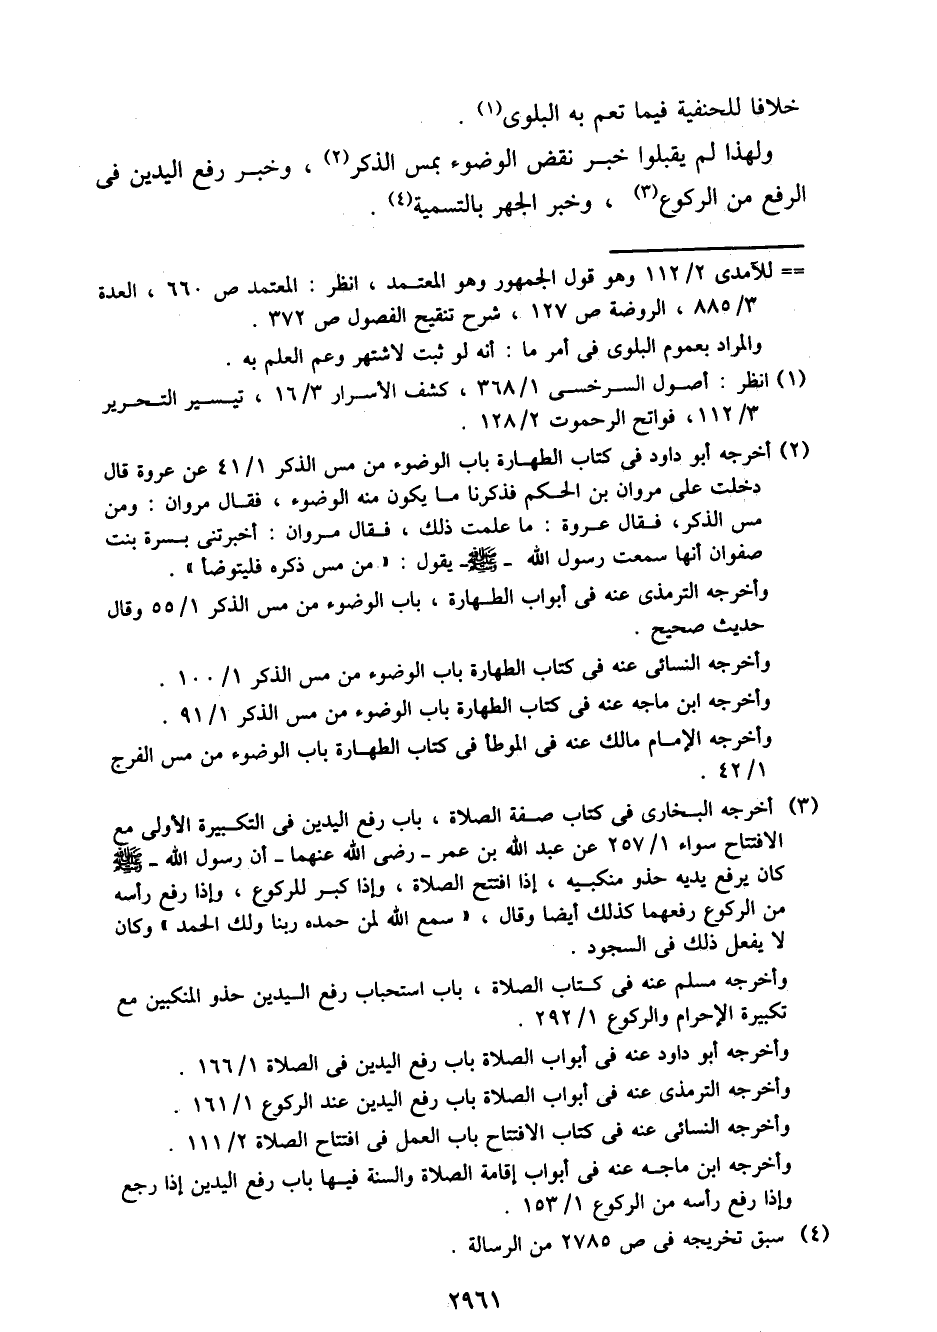 خلافا للحنفية فيما تعم به البلوى(١) .
ولهذا لم يقبلوا خبر نقض الوضوء بمس الذكر(٢) ، وخبر رفع اليدين فى
الرفع من الركوع(٣) ، وخبر الجهر بالتسمية(٤) .
== للآمدى ١١٢/٢ وهو قول الجمهور وهو المعتمد ، انظر : المعتمد ص ٦٦٠ ، العدة
٨٨٥/٣ ، الروضة ص ١٢٧ ، شرح تنقيح الفصول ص ٣٧٢ .
والمراد بعموم البلوى فى أمر ما : أنه لو ثبت لاشتهر وعم العلم به .
(١) انظر : أصول السرخسى ٣٦٨/١ ، كشف الأسرار ١٦/٣ ، تيسير التحرير
١١٢/٣ ، فواتح الرحموت ١٢٨/٢ .
(٢) أخرجه أبو داود فى كتاب الطهارة باب الوضوء من مس الذكر ٤١/١ عن عروة قال
دخلت على مروان بن الحكم فذكرنا ما يكون منه الوضوء ، فقال مروان : ومن
مس الذكر، فقال عروة : ما علمت ذلك ، فقال مروان : أخبرتنى بسرة بنت
صفوان أنها سمعت رسول الله - ﷺ - يقول : « من مس ذكره فليتوضأ » .
وأخرجه الترمذى عنه فى أبواب الطهارة ، باب الوضوء من مس الذكر ٥٥/١ وقال
حديث صحيح .
وأخرجه النسائى عنه فى كتاب الطهارة باب الوضوء من مس الذكر ١٠٠/١ .
وأخرجه ابن ماجه عنه فى كتاب الطهارة باب الوضوء من مس الذكر ٩١/١ .
وأخرجه الإمام مالك عنه فى الموطأ فى كتاب الطهارة باب الوضوء من مس الفرج
٤٢/١ .
(٣) أخرجه البخارى فى كتاب صفة الصلاة ، باب رفع اليدين فى التكبيرة الأولى مع
الافتتاح سواء ٢٥٧/١ عن عبد الله بن عمر - رضى الله عنهما - أن رسول الله - ﷺ
كان يرفع يديه حذو منكبيه ، إذا افتتح الصلاة ، وإذا كبر للركوع ، وإذا رفع رأسه
من الركوع رفعهما كذلك أيضا وقال ، « سمع الله لمن حمده ربنا ولك الحمد » وكان
لا يفعل ذلك فى السجود .
وأخرجه مسلم عنه فى كتاب الصلاة ، باب استحباب رفع اليدين حذو المنكبين مع
تكبيرة الإحرام والركوع ٢٩٢/١ .
وأخرجه أبو داود عنه فى أبواب الصلاة باب رفع اليدين فى الصلاة ١٦٦/١ .
وأخرجه الترمذى عنه فى أبواب الصلاة باب رفع اليدين عند الركوع ١٦١/١ .
وأخرجه النسائى عنه فى كتاب الافتتاح باب العمل فى افتتاح الصلاة ١١١/٢ .
وأخرجه ابن ماجه عنه فى أبواب إقامة الصلاة والسنة فيها باب رفع اليدين إذا رجع
وإذا رفع رأسه من الركوع ١٥٣/١ .
(٤) سبق تخريجه فى ص ٢٧٨٥ من الرسالة .
٢٩٦١